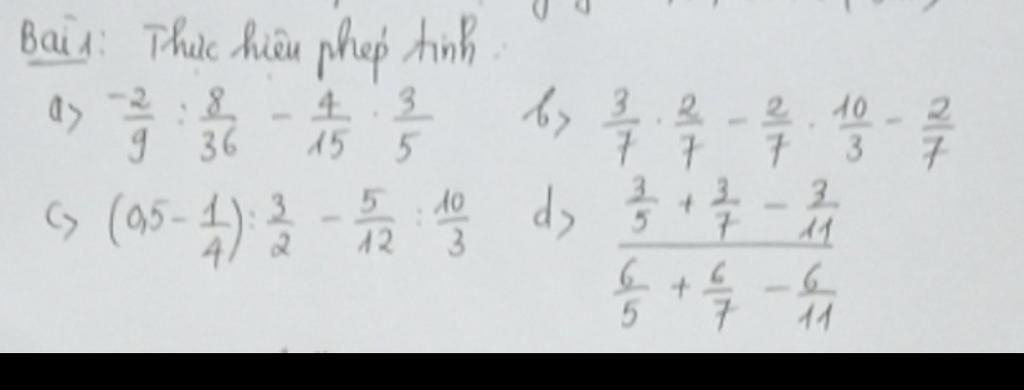 Bài 1: Thực hiện phép tính.
a> -2/9 : 8/36 - 4/15 . 3/5
b> 3/7 . 2/7 - 2/7 . 10/3 - 2/7
c> (0,5 - 1/4) : 3/2 - 5/12 : 10/3
d> (3/5 + 3/7 - 3/11) / (6/5 + 6/7 - 6/11)